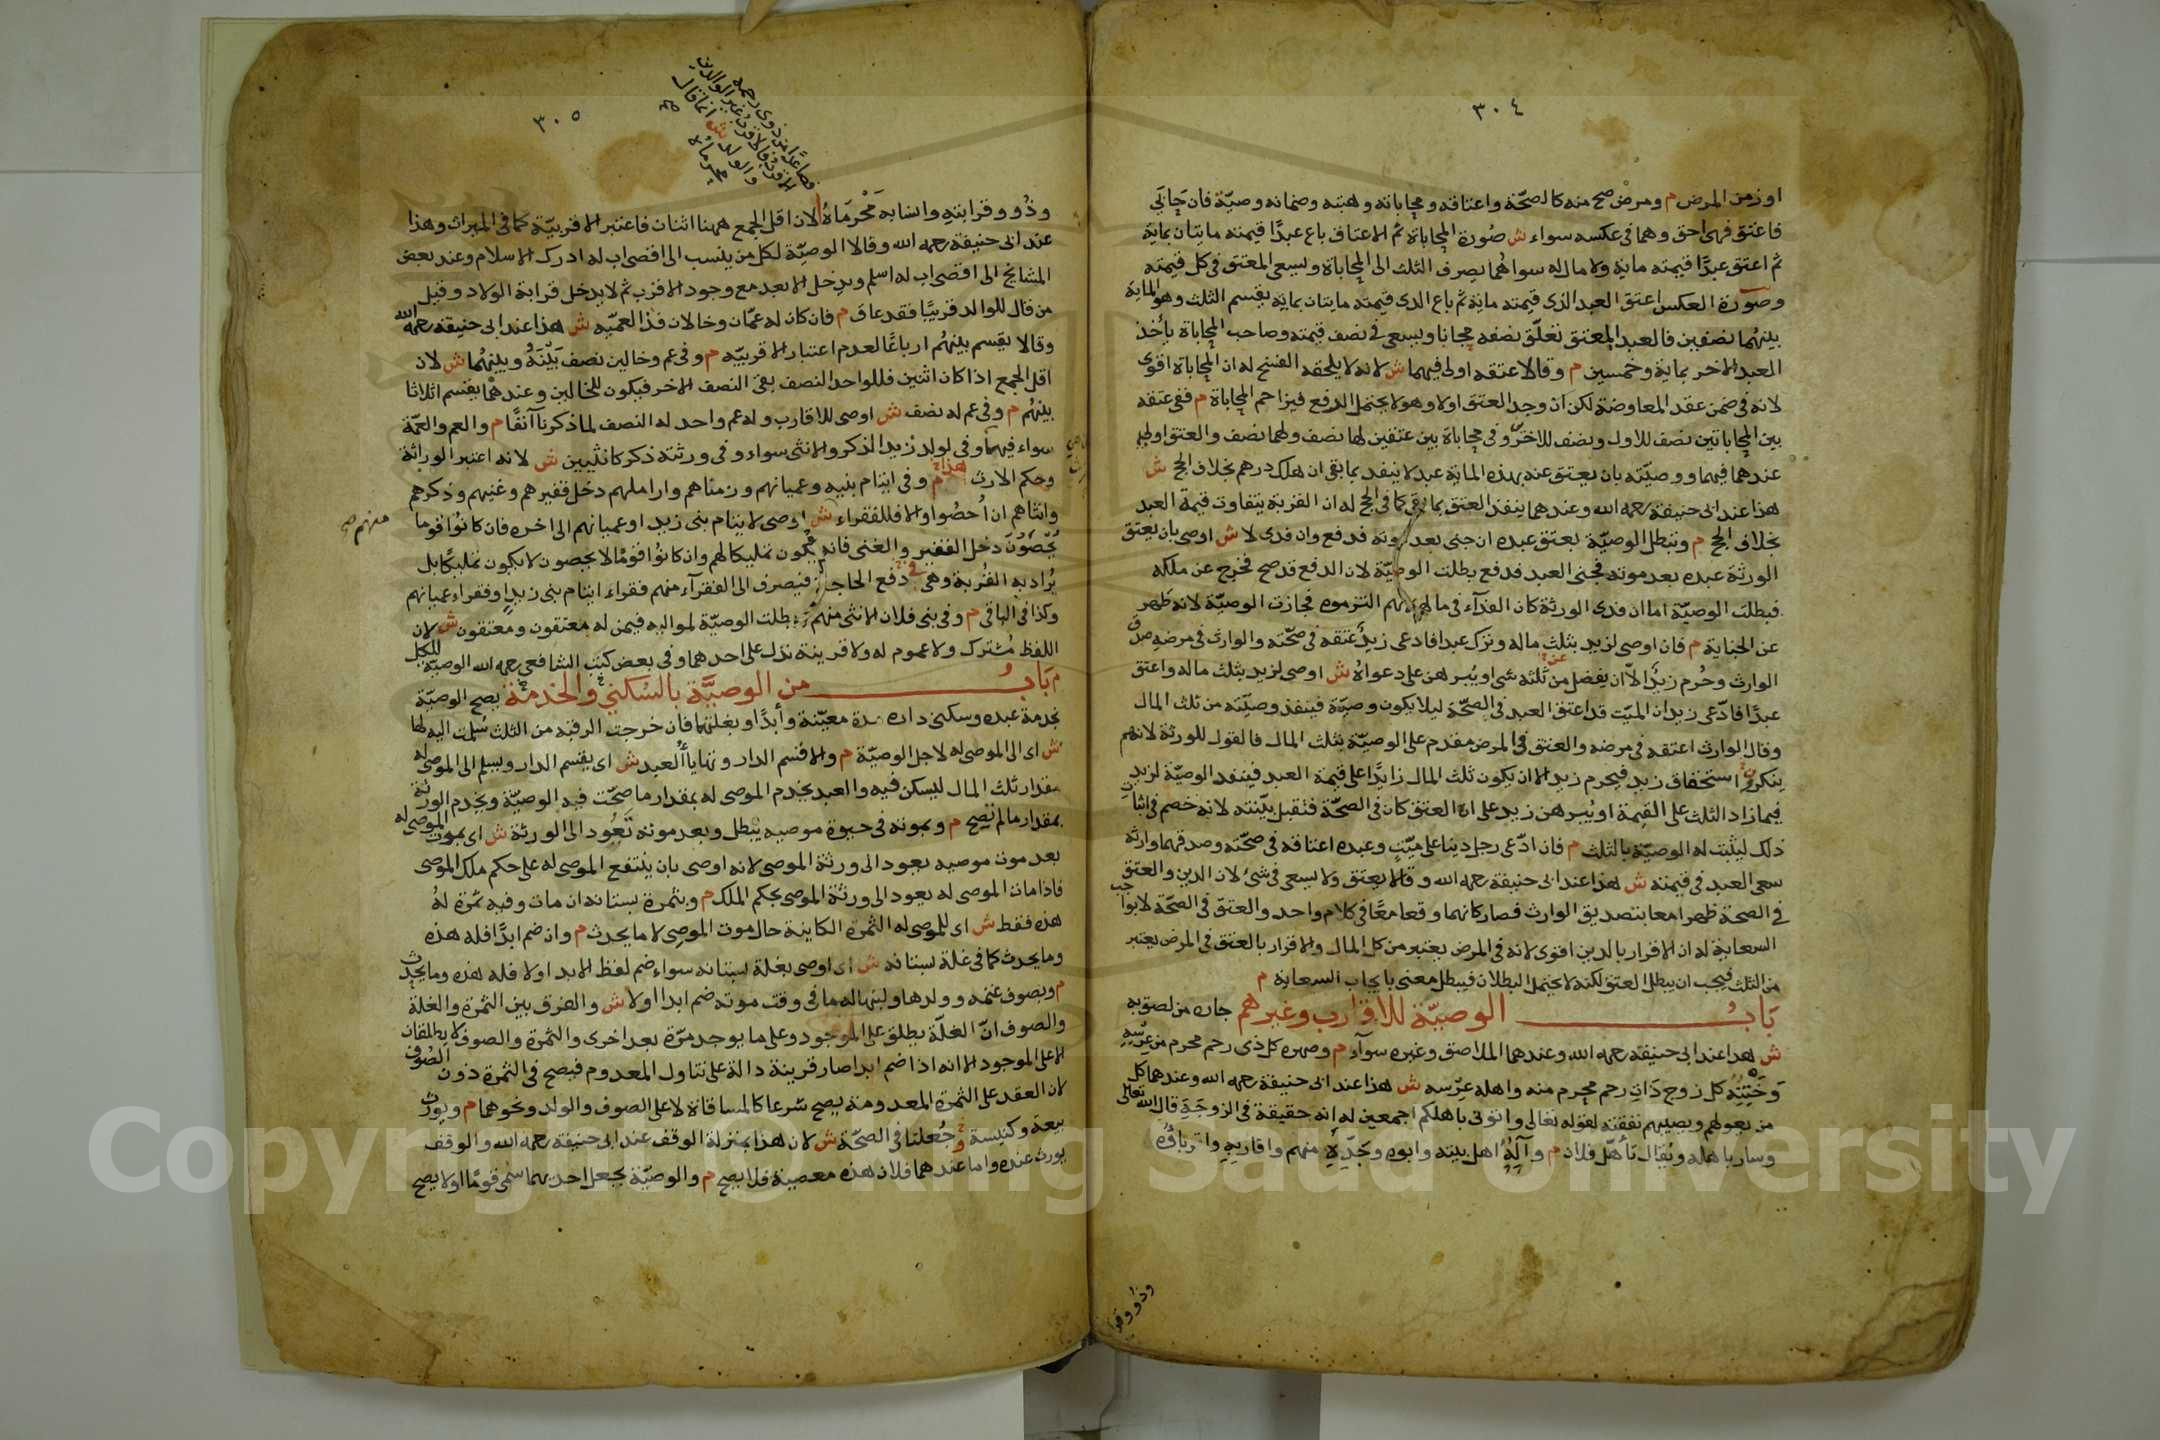 ٣٠٤
او زمن المرض م ومرض صح منه كالصحّة واعتاقه ومحاباته وهبته وضمانه وصيّة فان حَابَي
فاعتق فهى احق وهما فى عكسه سواء ش صُورة المحاباة ثم الاعتاق باع عبدًا قيمته مايتان بماية
ثم اعتق عبدًا قيمته ماية ولا مال له سواهُما يصرف الثلث الى المحاباة ويسعى المعتق فى كل قيمته
وصورة العكس اعتق العبد الذى قيمته ماية ثم باع الذى قيمته مايتان بماية يقسم الثلث وهو الماية
بينهُما نصفين فالعبد المعتق نصفه مجانا ويسعى فى نصف قيمته وصاحب المحاباة يأخذ
العبد الاخر بماية وخمسين م وقالا عتقه اولى فيهما ش لانه لا يلحقه الفسخ له ان المحاباة اقوى
لانه فى ضمن عقد المعاوضة لكن ان وجد العتق اولا وهو لا يحتمل الدفع فيزاحم المحاباة م ففى عتقه
بين المحاباتين نصف للاول ونصف للاخرين وفى محاباة بين عتقين لها نصف ولهما نصف والعتق اولى
عندهما فيهما ووصيّته بان يعتق عنه بهذه الماية عبد لا ينفذ بما بقى ان هلك درهم بخلاف الحج ش
هذا عند ابى حنيفة رحمه الله وعندهما ينفذ العتق بما بقى كما فى الحج له ان القربة يتفاوت قيمة العبد
بخلاف الحج م وتبطل الوصيّة بعتق عبده ان جنى بعد موته فدفع وان فدى لا ش اوصى بان يعتق
الورثة عبده بعد موته فجنى العبد فدفع بطلت الوصيّة لان الدفع قد صح فخرج عن ملكه
فبطلت الوصيّة اما ان فدى الورثة كان الفدآء فى مالهم لانهم التزموه فجازت الوصيّة لانه ظهر
عن الجناية م فان اوصى لزيد بثلث ماله وترك عبدا فادعى زيد عتقه فى صحّته والوارث فى مرضه صدق
الوارث وحُرم زيد الّا ان يفضل من ثلثه شى او يُبرهن على دعواهُ ش اوصى لزيد بثلث ماله واعتق
عبدًا فادّعى زيد ان الميّت قد اعتق العبد فى الصحّة ليلا يكون وصيّة فينفذ وصيّته من ثلث المال
وقال الوارث اعتقه فى مرضه والعتق فى المرض مقدم على الوصيّة بثلث المال فالقول للورثة لانهم
ينكرون استحقاق زيد فيحرم زيد الا ان يكون ثلث المال زايدًا على قيمة العبد فينفذ الوصيّة لزيد
فيما زاد الثلث على القيمة او يُبرهن زيد على ان العتق كان فى الصحّة فتقبل بيّنته لانه خصم فى اثبات
ذلك ليثبت له الوصيّة بالثلث م فان ادّعى رجل دينا على ميّتٍ وعبده اعتاقه فى صحّته وصدقهما وارثه
سعى العبد فى قيمته ش هذا عند ابى حنيفة رحمه الله وقالا يعتق ولا يسعى فى شئ لان الدين والعتق
فى الصحة ظهرا معا بتصديق الوارث فصار كانهما وقعا معًا فى كلام واحد والعتق فى الصحّة لا يوجب
السعاية له ان الاقرار بالدين اقوى لانه فى المرض يعتبر من كل المال والاقرار بالعتق فى المرض يعتبر
من الثلث فيجب ان يبطل العتق لكنه لا يحتمل البطلان فيبطل معنى بايجاب السعاية م
بَابُ الوصيّة للاقارب وغيرهم جاره من لصق به
ش هذا عند ابى حنيفة رحمه الله وعندهما الملاصق وغيره سوآء م وصهره كل ذى رحم محرم من عِرْسِه
وَخَتَنُهُ كل زوج ذَات رحم محرم منه واهله عِرْسه ش هذا عند ابى حنيفة رحمه الله وعندهما كل
من يعولهم ويصيبهم نفقته لقوله تعالى واتونى باهلكم اجمعين له انه حقيقة فى الزوجة قال الله تعالى
وسار باهله ويُقال تأهّل فلان م وآلُهُ اهل بيته وابوه وجَدُّه منهم واقاربه واقرباؤُه
وذُو وقرا
٣٠٥
فصاعدًا من ذوى رحمه
الاقرب فالاقرب غير الوالدين
والولد ش انما قال
محرماه
وذُوو قرابته وانسابه مَحْرمَاهُ لان اقل الجمع ههنا اثنان فاعتبر الاقربيّة كما فى الميراث وهذا
عند ابى حنيفة رحمه الله وقالا الوصيّة لكل من ينسب الى اقصى اب له ادرك الاسلام وعند بعض
المشايخ الى اقصى اب له اسلم ويدخل الابعد مع وجود الاقرب ثم لا يدخل قرابة الولاد وقيل
من قال للوالد قريبًا فقد عاق م فان كان له عمّان وخالان فذا لعميّه ش هذا عند ابى حنيفة رحمه الله
وقالا يقسم بينهُم ارباعًا لعدم اعتبار الاقربيّة م وفى عم وخالين نصف بَيْنَهُ وبينهُما ش لان
اقل الجمع اذا كان اثنين فللواحد النصف بقى النصف الاخر فيكون للخالين وعندهما يقسم اثلاثا
بينهُم م وفى عم له نصف ش اوصى للاقارب وله عم واحد له النصف لما ذكرنا آنفًا م والعم والعمّة
سواء فيهما وفى لولد زيد الذكر والانثى سواء وفى ورثته ذكر كانثيين ش لانه اعتبر الوراثة
وحكم الارث هذا م وفى ايتام بنيه وعميانهم وزمناهم واراملهم دخل فقيرهم وغنيهم وذكرهم
وانثاهم ان اُحصُوا والا فللفقراء ش اوصى لايتام بنى زيد او عميانهم الى اخره فان كانُوا قوما
منهم صح
يُحْصَوْنَ دخل الفقير والغنى فانه يكون تمليكا لهم وان كانُوا قومًا لا يحصون لا يكون تمليكًا بل
يُراد به القُربة وهى فى دفع الحاجة فيصرف الى الفقرآء منهم فقراء ايتام بنى زيدٍ او فقراء عميانهم
وكذا فى الباقى م وفى بنى فلان الانثى منهم وبطلت الوصيّة لمواليه فيمن له معتقون ومعتقون ش لان
اللفظ مُشترك ولا عموم له ولا قرينة تدل على احدهما وفى بعض كتب الشافعى رحمه الله الوصية للكل
م بَابُ من الوصيَّة بالسُكنىٰ والخدمة يصح الوصيّة
بخدمة عبده وسكنى داره مدة معيّنة وأبدًا وبغلتهما فان خرجت الرقبة من الثلث سُلمت اليه لها
ش اى الى الموصى له لاجل الوصيّة م والا قسم الدار وتهايأ العبد ش اى يقسم الدار ويسلم الى الموصى له
مقدار ثلث المال ليسكن فيه والعبد يخدم الموصى له بمقدار ما صحّت فيه الوصيّة ويخدم الورثة
بمقدار ما لم تصح م وبموته فى حيوة موصيه يبطل وبعد موته تَعُود الى الورثة ش اى بموت الموصى له
بعد موت موصيه يعود الى ورثة الموصى لانه اوصى بان ينتفع الموصى له على حكم ملك الموصى
فاذا مات الموصى له يعود الى ورثة الموصى بحكم الملك م وبثمرة بستانه ان مات وفيه ثمرة لهُ
هذه فقط ش اى للموصى له الثمرة الكاينة حال موت الموصِى لا ما يحدث م وان ضم ابدًا فله هذه
وما يحدث كما فى غلة بستانه ش اى اوصى بغلة بستانه سواء ضم لفظ الابد اولا فله هذه وما يحدث
م وبصوف غنمه وولدها ولبنها له ما فى وقت موته ضم ابدا اولا ش والفرق بين الثمرة والغلة
والصوف انّ الغلّة يطلق على الموجود وعلى ما يوجد مرّة بعد اخرى والثمرة والصوف لا يطلقان
الا على الموجود الا انه اذا ضم ابدا صار قرينة دالة على تناول المعدوم فيصح فى الثمرة دون الصُوف
لان العقد على الثمرة المعدومة يصح شرعا كالمساقاة لا على الصوف والولد ونحوهما م ويورث
بيعة وكنيسة جُعلتا فى الصحّة ش لان هذا بمنزلة الوقف عند ابى حنيفة رحمه الله والوقف
يورث عنده واما عندهما فلان هذه معصية فلا يصح م والوصيّة بجعل احديهما سمى قومًا اولا يصح